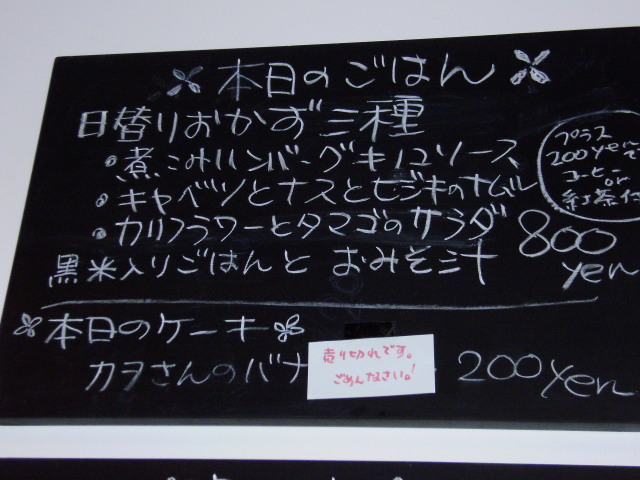 本日のごはん
日替りおかず三種
・煮こみハンバーグキノコソース
・キャベツとナスとヒジキのナムル
・カリフラワーとタマゴのサラダ
黒米入りごはんと おみそ汁
800
yen
プラス
200yenで
コーヒー
or
紅茶付
本日のケーキ
カヲさんのバナ
200yen
売り切れです。
ごめんなさい。!